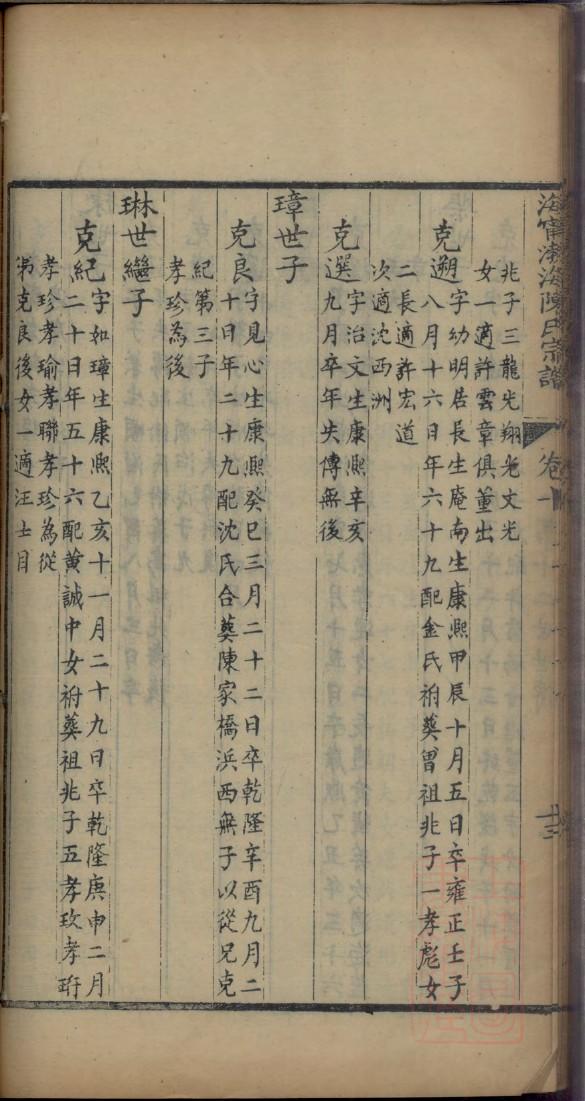 海寧渤海陳氏宗譜
卷
兆子三龍光翔光文光
女一適許雲章俱董出
克遡字幼明居長生庵南生康熙甲辰十月五日卒雍正壬子
八月十六日年六十九配金氏祔葬曾祖兆子一孝彪女
二長適許宏道
次適沈西洲
克選字治文生康熙辛亥
九月卒年失傳無後
璋世子
克良字見心生康熙癸巳三月二十二日卒乾隆辛酉九月二
十日年二十九配沈氏合葬陳家橋浜西無子以從兄克
紀第三子
孝珍為後
琳世繼子
克紀字如璋生康熙乙亥十一月二十九日卒乾隆庚申二月
二十日年五十六配黃誠中女祔葬祖兆子五孝玫孝珩
孝珍孝瑜孝聯孝珍為從
弟克良後女一適汪士目